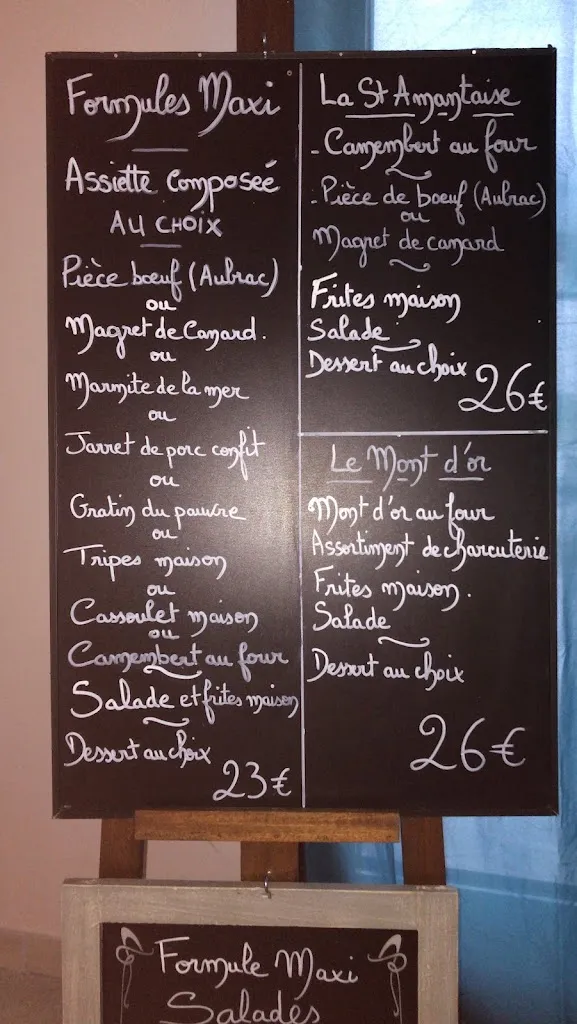 Formules Maxi
Assiette composée
AU CHOIX
Pièce bœuf (Aubrac)
ou
Magret de Canard.
ou
Marmite de la mer
ou
Jarret de porc confit
ou
Gratin du pauvre
ou
Tripes maison
ou
Cassoulet maison
ou
Camembert au four
Salade et frites maison
Dessert au choix
23€
La St Amantaise
- Camembert au four
- Pièce de bœuf (Aubrac)
ou
Magret de canard
Frites maison
Salade
Dessert au choix
26€
Le Mont d'or
Mont d'or au four
Assortiment de charcuterie
Frites maison.
Salade
Dessert au choix
26€
Formule Maxi
Salades